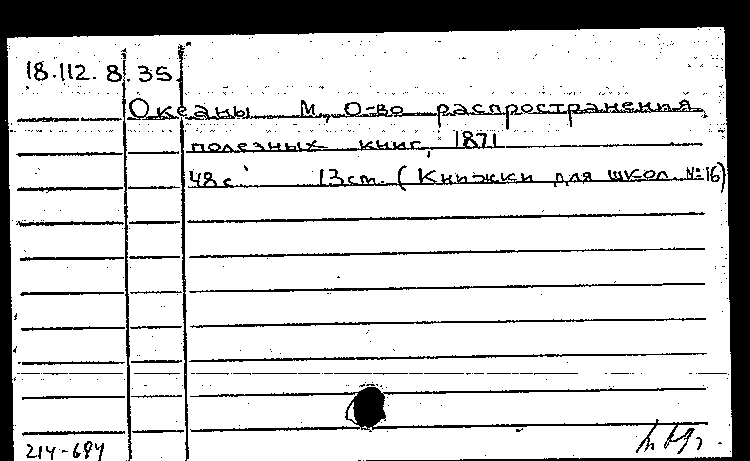 18.112.8.35.
Океаны М., О-во распространения
полезных книг, 1871
48 с. 13 см. (Книжки для школ. № 16)
214-694